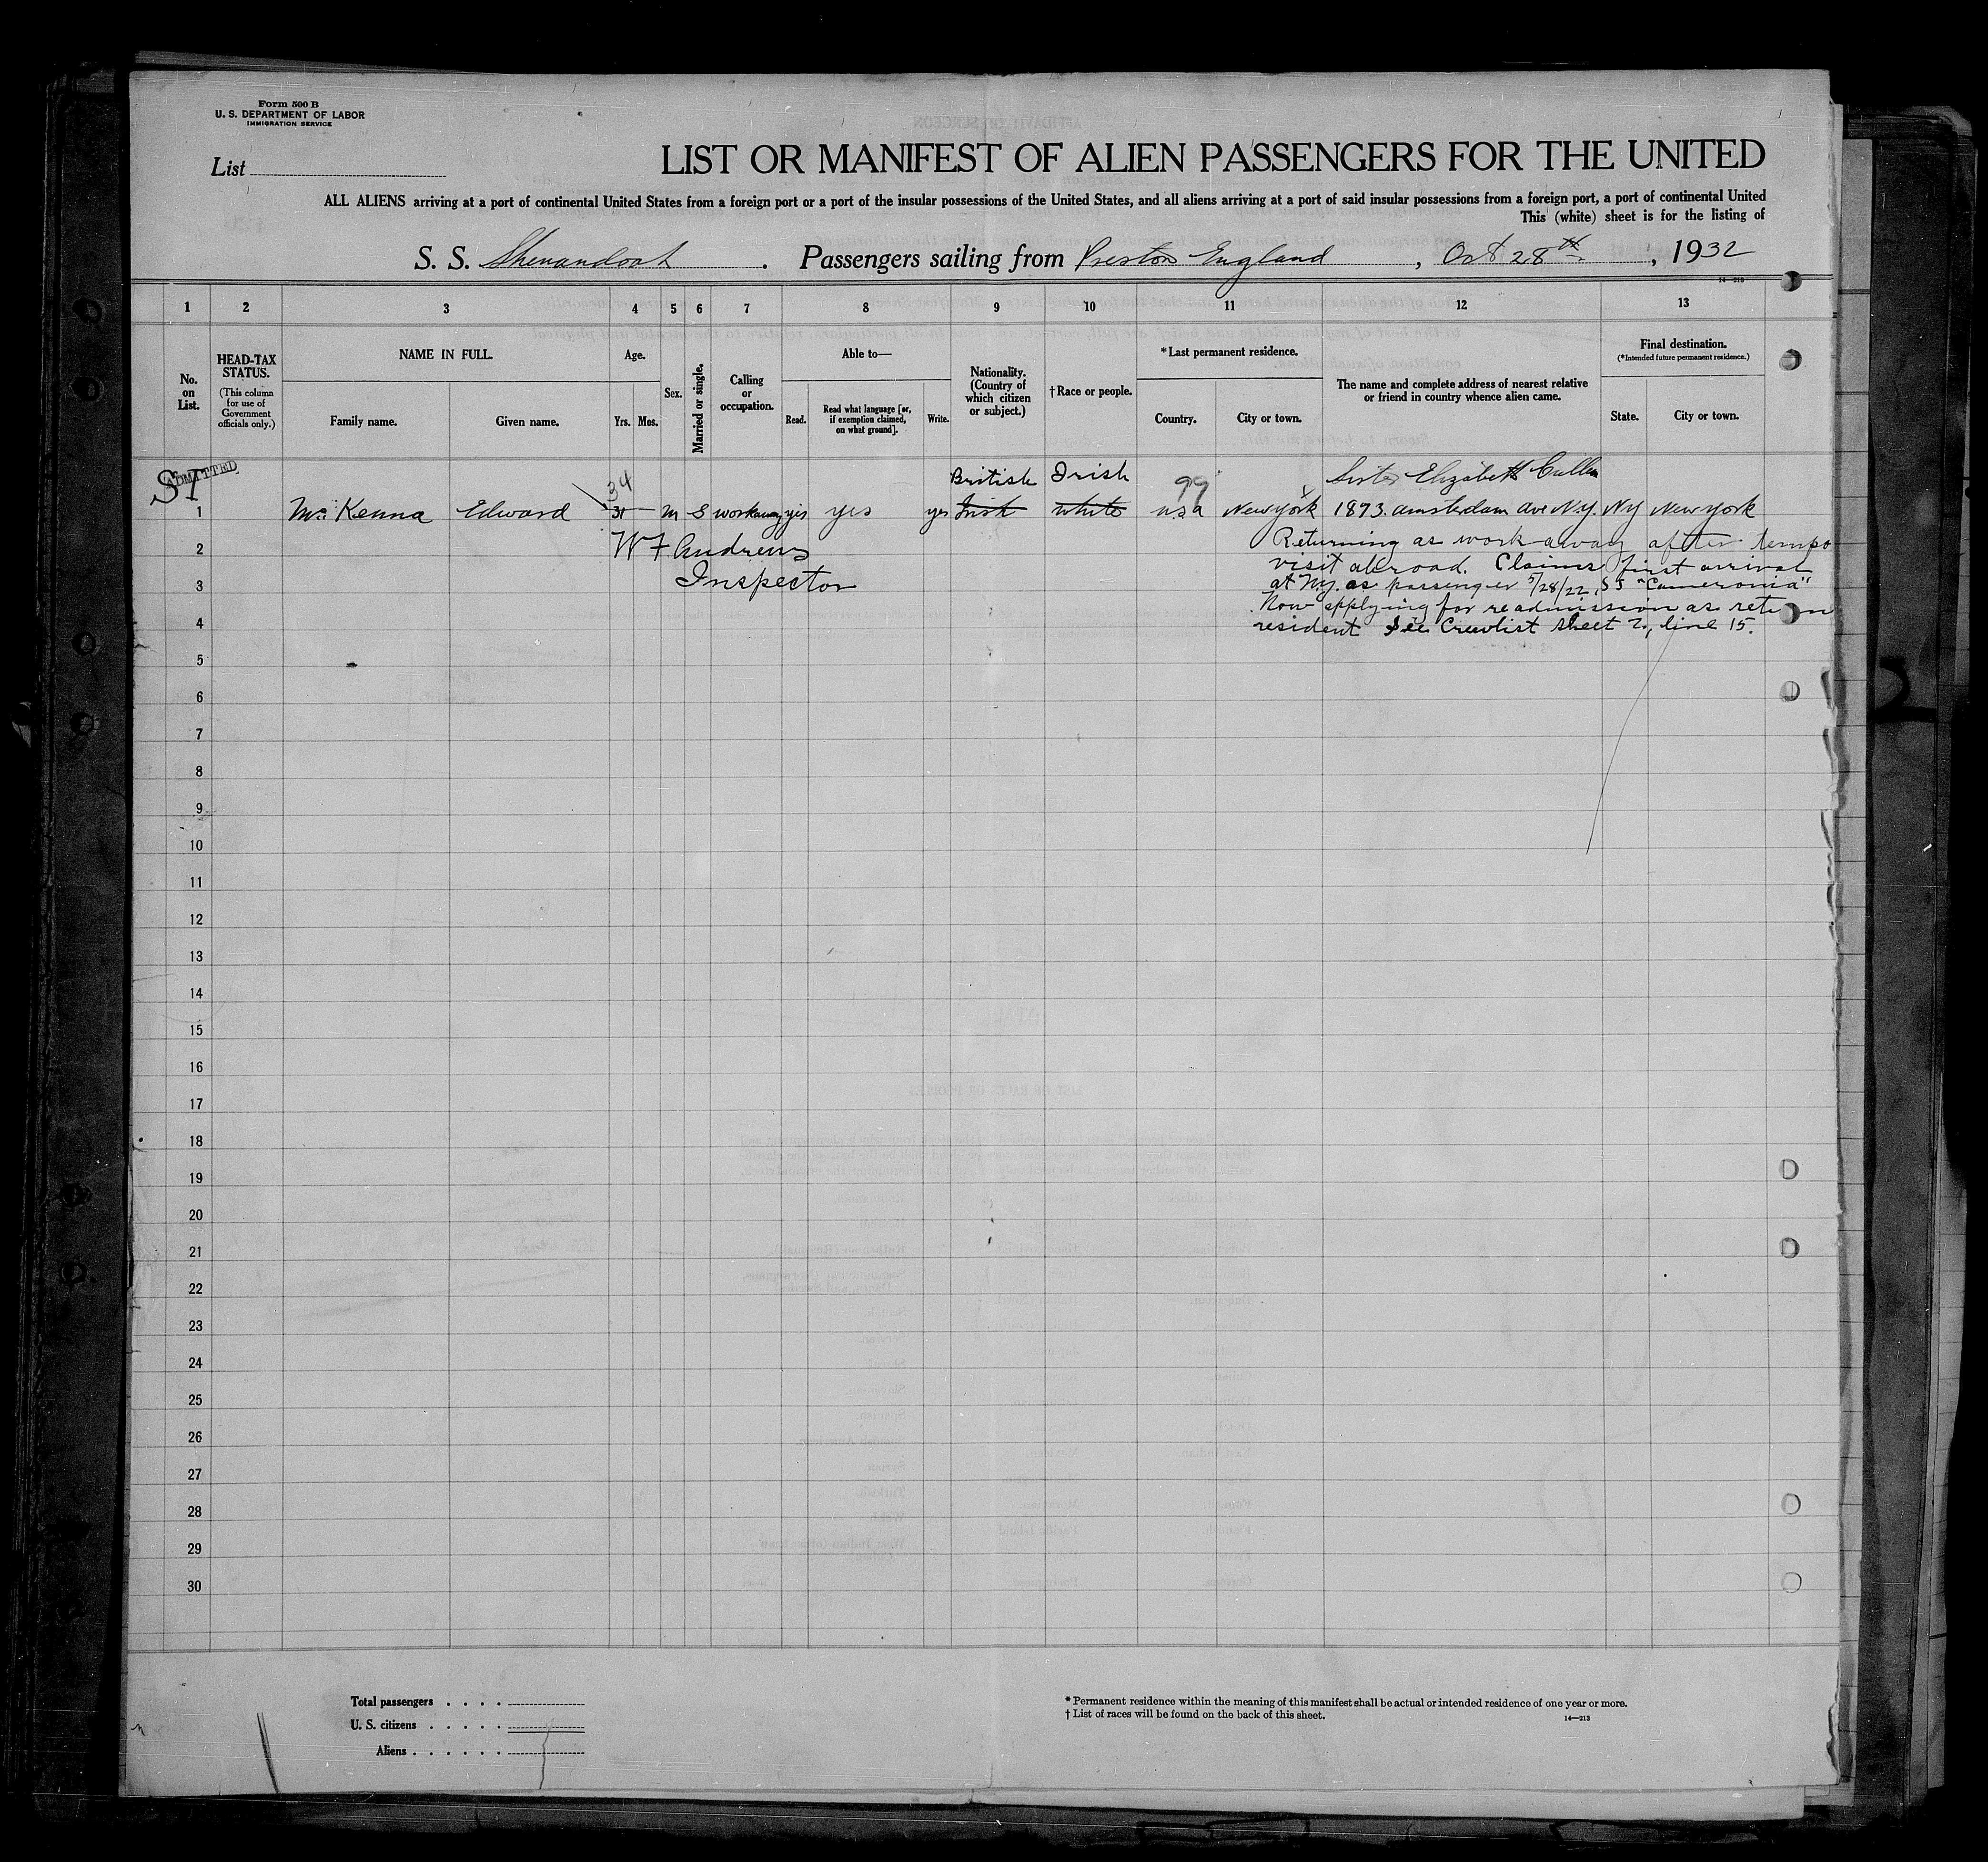 Form 500 B
U. S. DEPARTMENT OF LABOR
IMMIGRATION SERVICE
List
LIST OR MANIFEST OF ALIEN PASSENGERS FOR THE UNITED
ALL ALIENS arriving at a port of continental United States from a foreign port or a port of the insular possessions of the United States, and all aliens arriving at a port of said insular possessions from a foreign port, a port of continental United
This (white) sheet is for the listing of
S. S. Shenandoah . Passengers sailing from Preston England , Oct 28th , 1932
14—213
1 2 3 4 5 6 7 8 9 10 11 12 13
No. on List.
HEAD-TAX STATUS.
(This column for use of Government officials only.)
NAME IN FULL.
Family name. Given name.
Age.
Yrs. Mos.
Sex.
Married or single.
Calling or occupation.
Able to—
Read. Read what language [or, if exemption claimed, on what ground]. Write.
Nationality. (Country of which citizen or subject.)
† Race or people.
* Last permanent residence.
Country. City or town.
The name and complete address of nearest relative or friend in country whence alien came.
Final destination.
(*Intended future permanent residence.)
State. City or town.
SI ADMITTED
34 British Irish 99 Sister Elizabeth Cullen
1 McKenna Edward 31 m S workaway yes yes yes Irish white USA New York 1873 Amsterdam Ave N.Y. NY New York
2 W F Andrews
Inspector
Returning as work-away after tempo
visit abroad. Claims first arrival
at N.Y. as passenger 5/28/22, SS "Cameronia"
Now applying for readmission as return
resident See Crewlist sheet 2, line 15.
3
4
5
6
7
8
9
10
11
12
13
14
15
16
17
18
19
20
21
22
23
24
25
26
27
28
29
30
Total passengers . . . .
U. S. citizens . . . . .
Aliens . . . . . .
* Permanent residence within the meaning of this manifest shall be actual or intended residence of one year or more.
† List of races will be found on the back of this sheet.
14—213